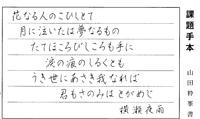 課題手本
山田粋峯書
花なる人のこひしとて
月に泣いたは夢なるもの
たてほころびしころも手に
涙の痕のしろくとも
うき世にあさき我なれば
君もさのみはとがめじ
横瀬夜雨